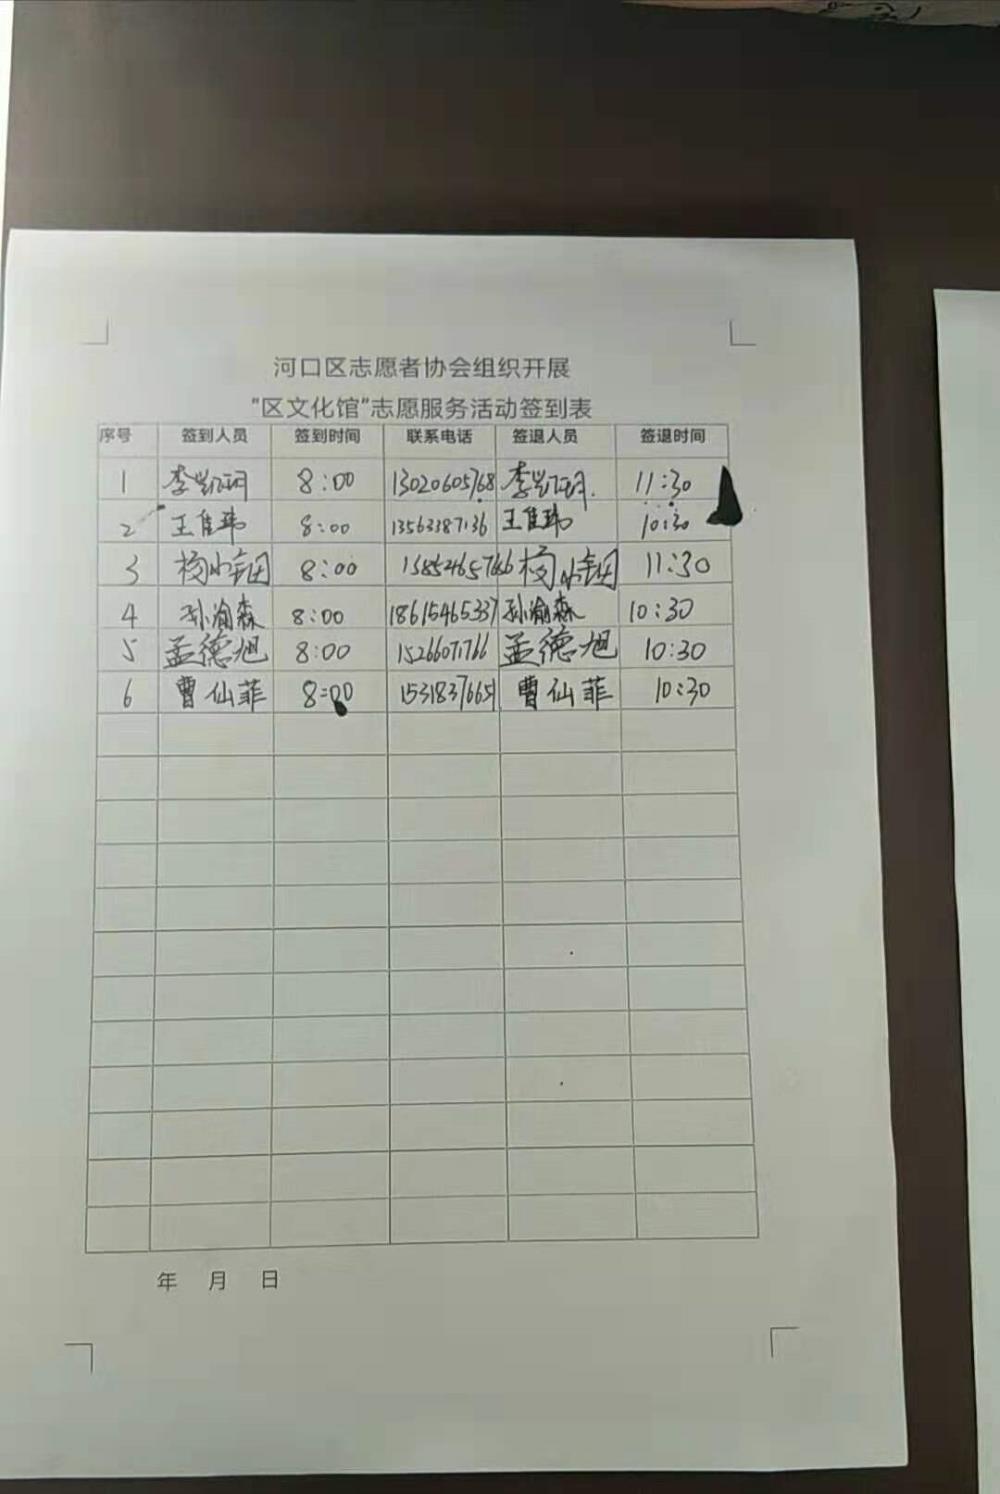 河口区志愿者协会组织开展
“区文化馆”志愿服务活动签到表
序号 签到人员 签到时间 联系电话 签退人员 签退时间
1 李凯玥 8:00 13020605768 李凯玥 11:30
2 王佳玮 8:00 13563387136 王佳玮 10:30
3 杨 8:00 杨 11:30
4 孙渝森 8:00 18615465337 孙渝森 10:30
5 孟德旭 8:00 15266071766 孟德旭 10:30
6 曹仙菲 8:00 15318376651 曹仙菲 10:30
年 月 日